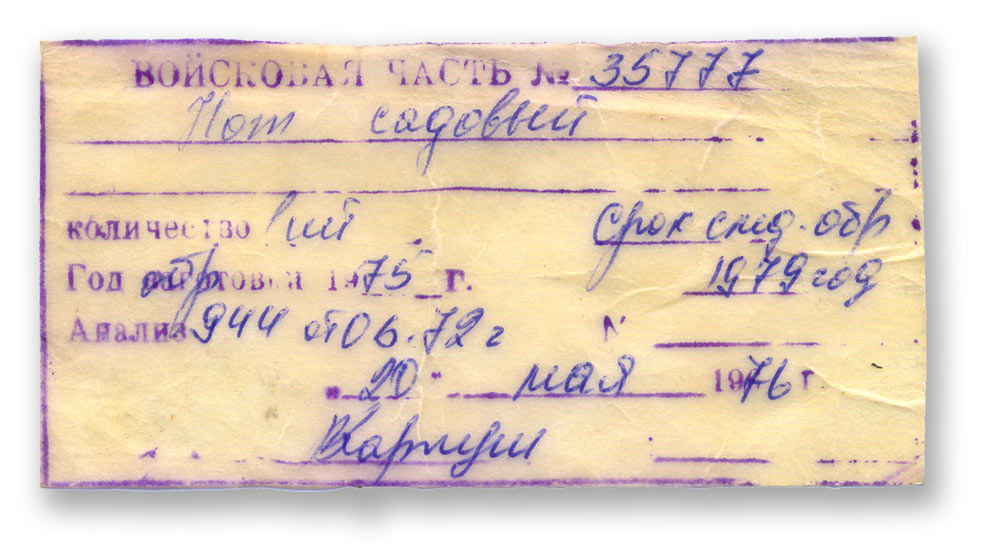 ВОЙСКОВАЯ ЧАСТЬ № 35777
Нож садовый
количество 1 шт срок след. обр
Год обр 1975 г. 1979 год
Анализ 944 от 06.72 г N
„20" мая 1976 г